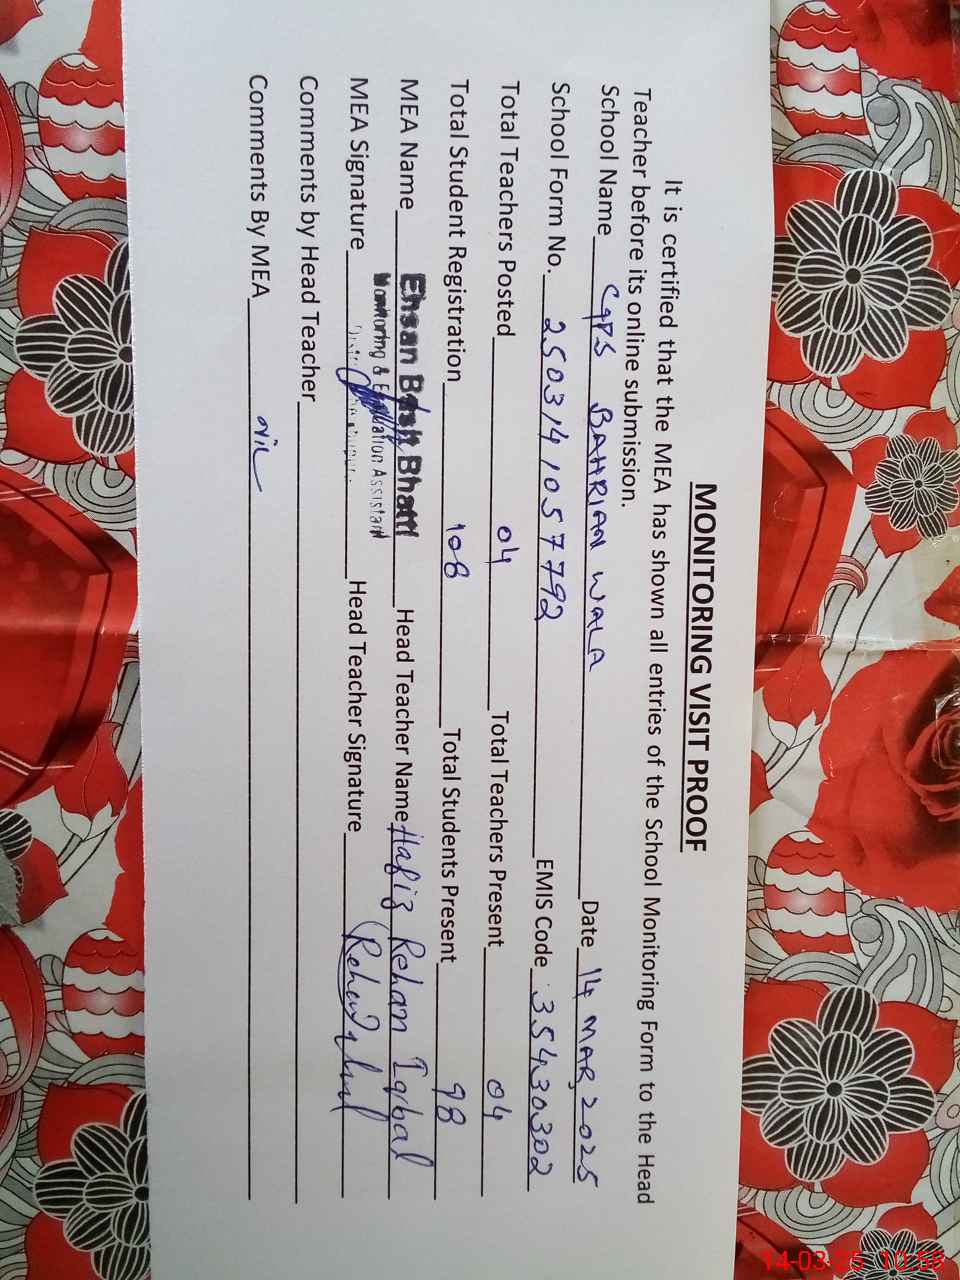 MONITORING VISIT PROOF
It is certified that the MEA has shown all entries of the School Monitoring Form to the Head
Teacher before its online submission.
School Name CGPS BAHRIAN WALA Date 14 MAR, 2025
School Form No. 2503141057792 EMIS Code 35430302
Total Teachers Posted 04 Total Teachers Present 04
Total Student Registration 108 Total Students Present 98
MEA Name Ehsan Bhatti Head Teacher Name Hafiz Rehan Iqbal
Monitoring & Evaluation Assistant
MEA Signature Head Teacher Signature
Comments by Head Teacher
Comments By MEA Nil
14-03-25 10:58